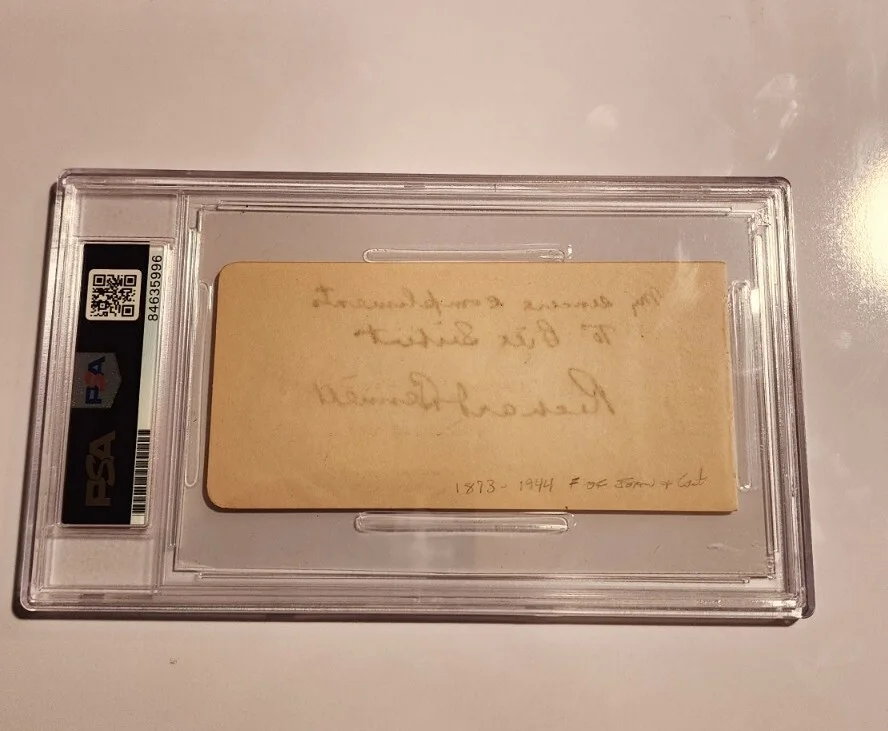 84635996
PSA
PSA
My sincere compliments
To Bill
Richard Bennett
1873-1944 F OF JOAN &